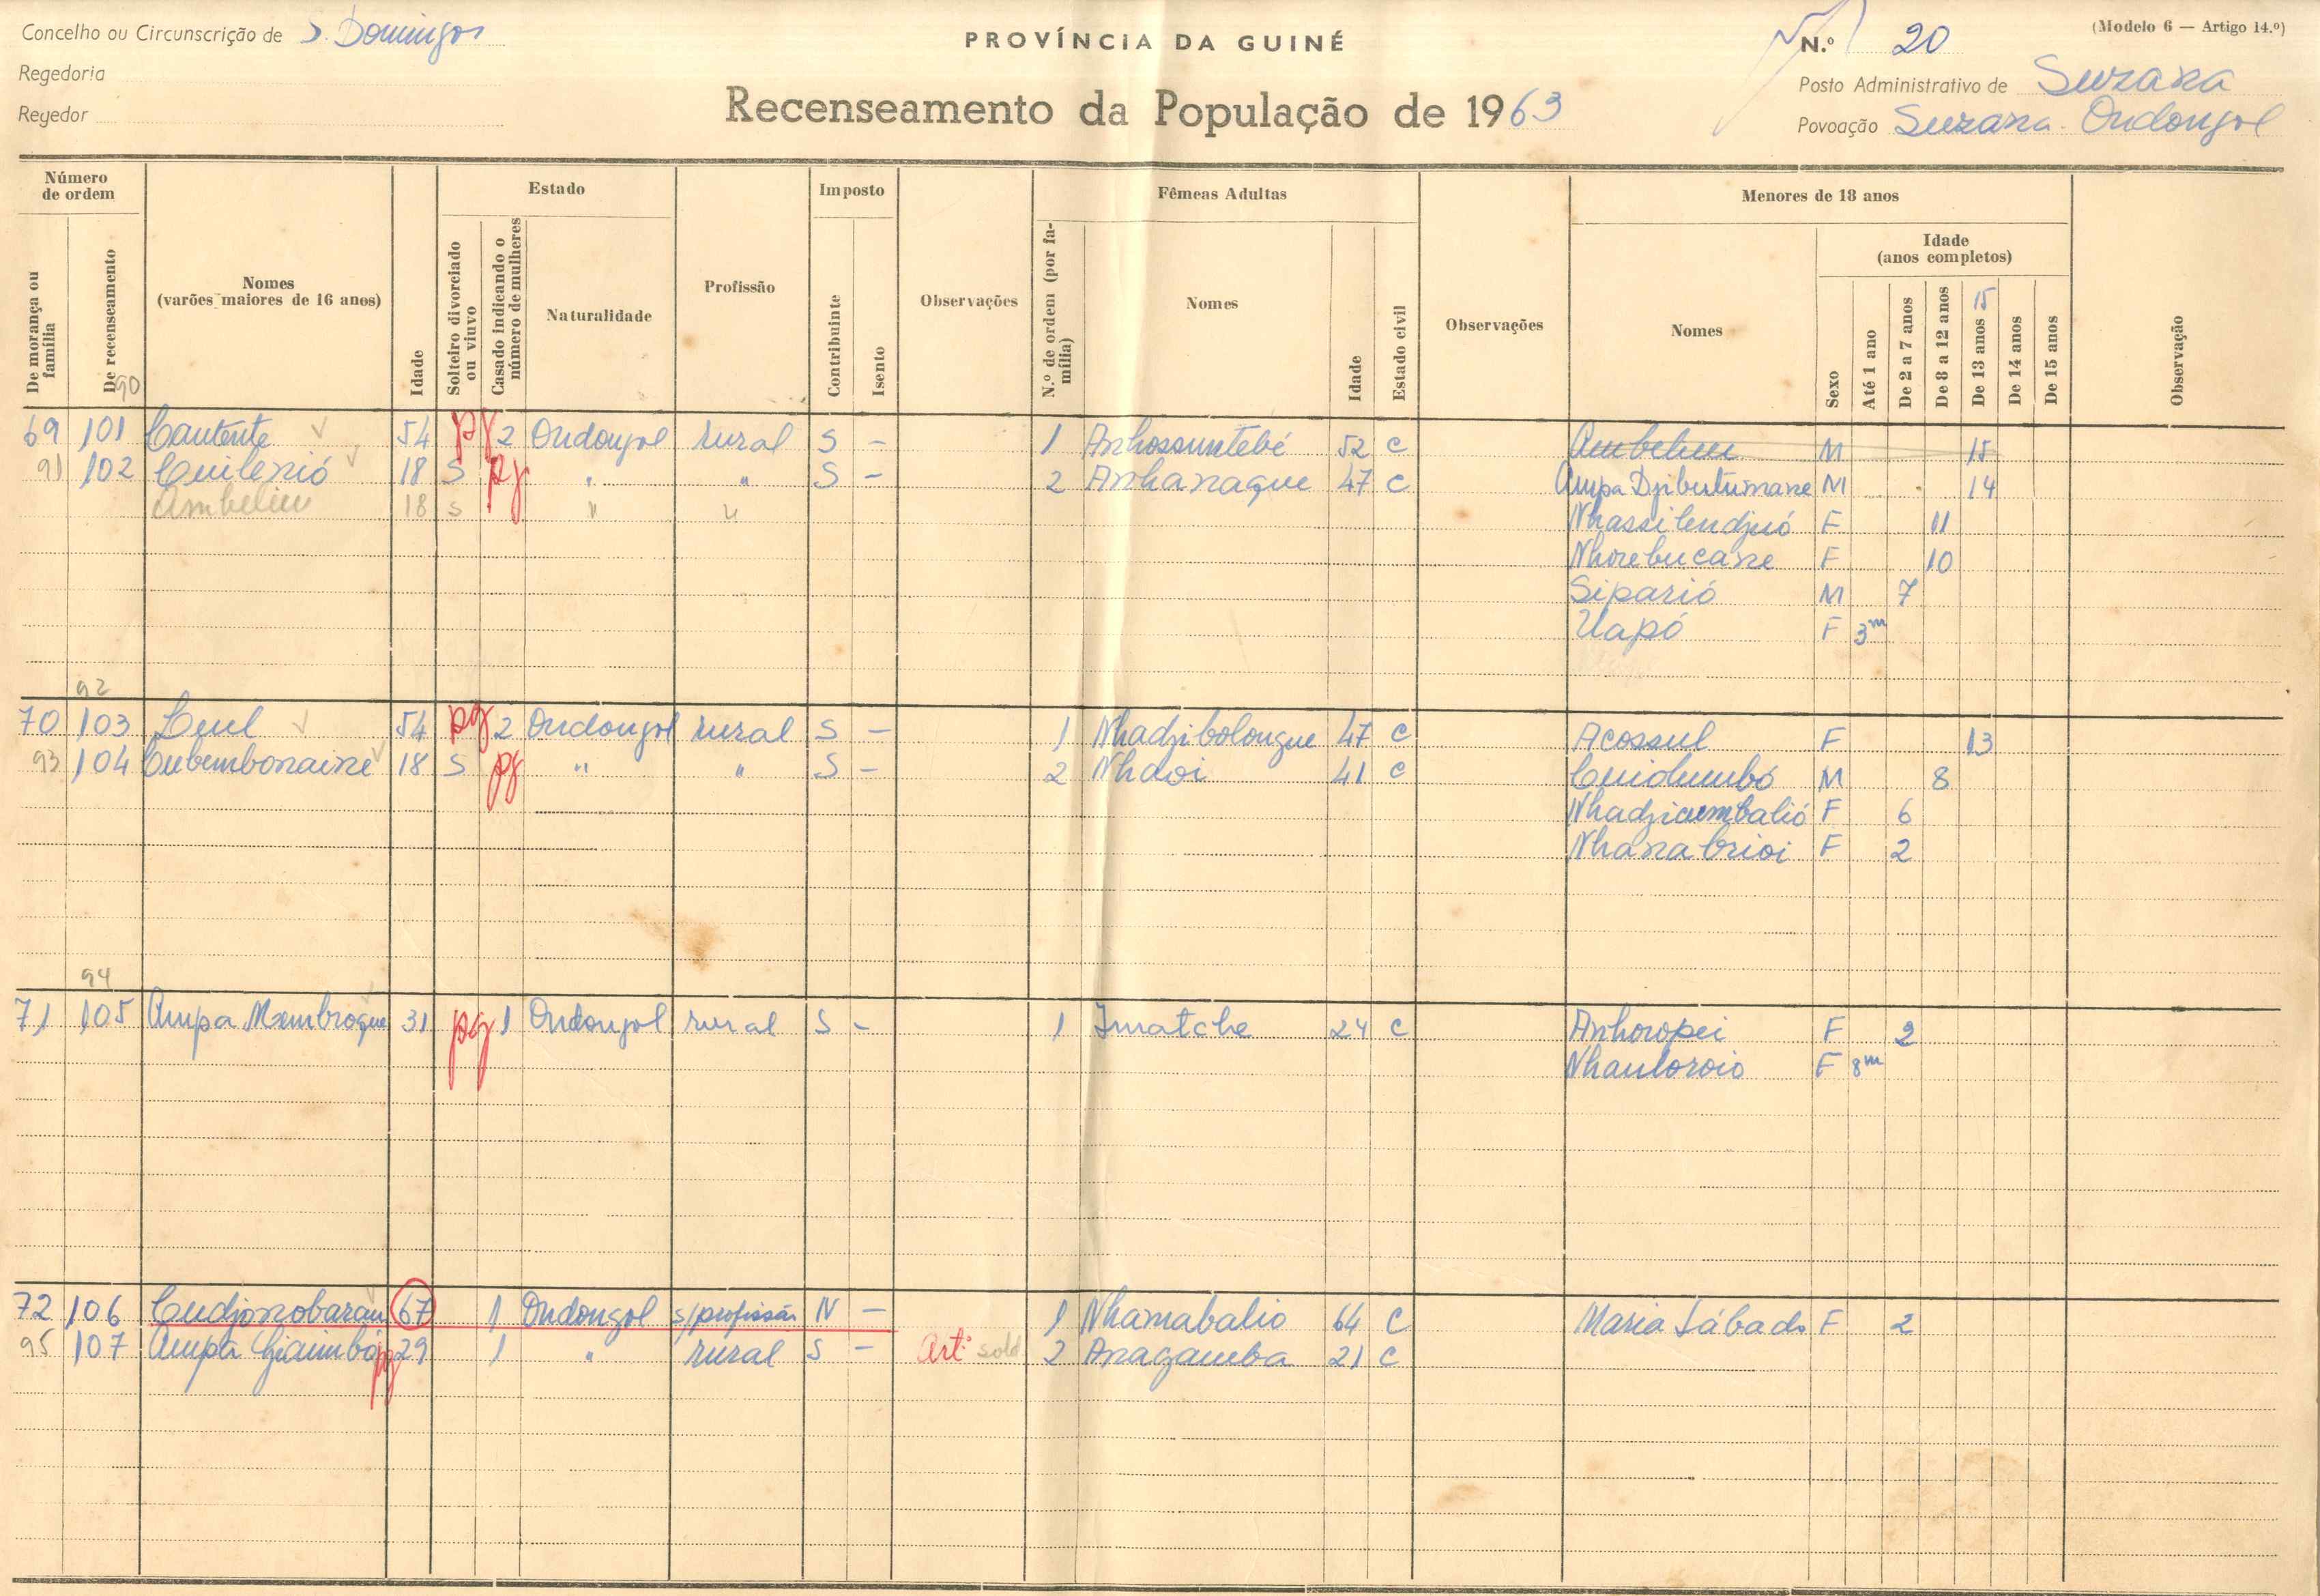 Concelho ou Circunscrição de S. Domingos
PROVÍNCIA DA GUINÉ
N.º 20
(Modelo 6 — Artigo 14.º)
Regedoria
Posto Administrativo de Suzana
Regedor
Recenseamento da População de 1963
Povoação Suzana - Ondongol
Número de ordem
Estado
Imposto
Fêmeas Adultas
Menores de 18 anos
De morança ou família
De recenseamento
Nomes (varões maiores de 16 anos)
Idade
Solteiro divorciado ou viuvo
Casado indicando o número de mulheres
Naturalidade
Profissão
Contribuinte
Isento
Observações
N.º de ordem (por família)
Nomes
Idade
Estado civil
Observações
Nomes
Sexo
Idade (anos completos)
Até 1 ano
De 2 a 7 anos
De 8 a 12 anos
De 13 anos 15
De 14 anos
De 15 anos
Observação
90
69 101 Cautente 54 pg 2 Ondongol rural S — 1 Anhossuntebé 52 C Ambelim M 15
91 102 Cuilenió 18 S pg " " S — 2 Anhanaque 47 C Ampa Djibutumane M 14
Ambelim 18 S " " Nhassilendjuó F 11
Nhorebucane F 10
Siparió M 7
Uapó F 3m
92
70 103 Leul 54 pg 2 Ondongol rural S — 1 Nhadjibolongue 47 C Acossul F 13
93 104 Cubembonaine 18 S pg " " S — 2 Nhdoi 41 C Cuidumbó M 8
Nhadjicumbalió F 6
Nhanabrioi F 2
94
71 105 Ampa Mambroque 31 pg 1 Ondongol rural S — 1 Imatche 24 C Anhoropei F 2
Nhauloroio F 8m
72 106 Cudjonobarau 67 1 Ondongol s/profissão N — 1 Nhamabalio 64 C Maria Sábado F 2
95 107 Ampa Giaimbó pg 29 1 " rural S — Artº sold 2 Anagamba 21 C